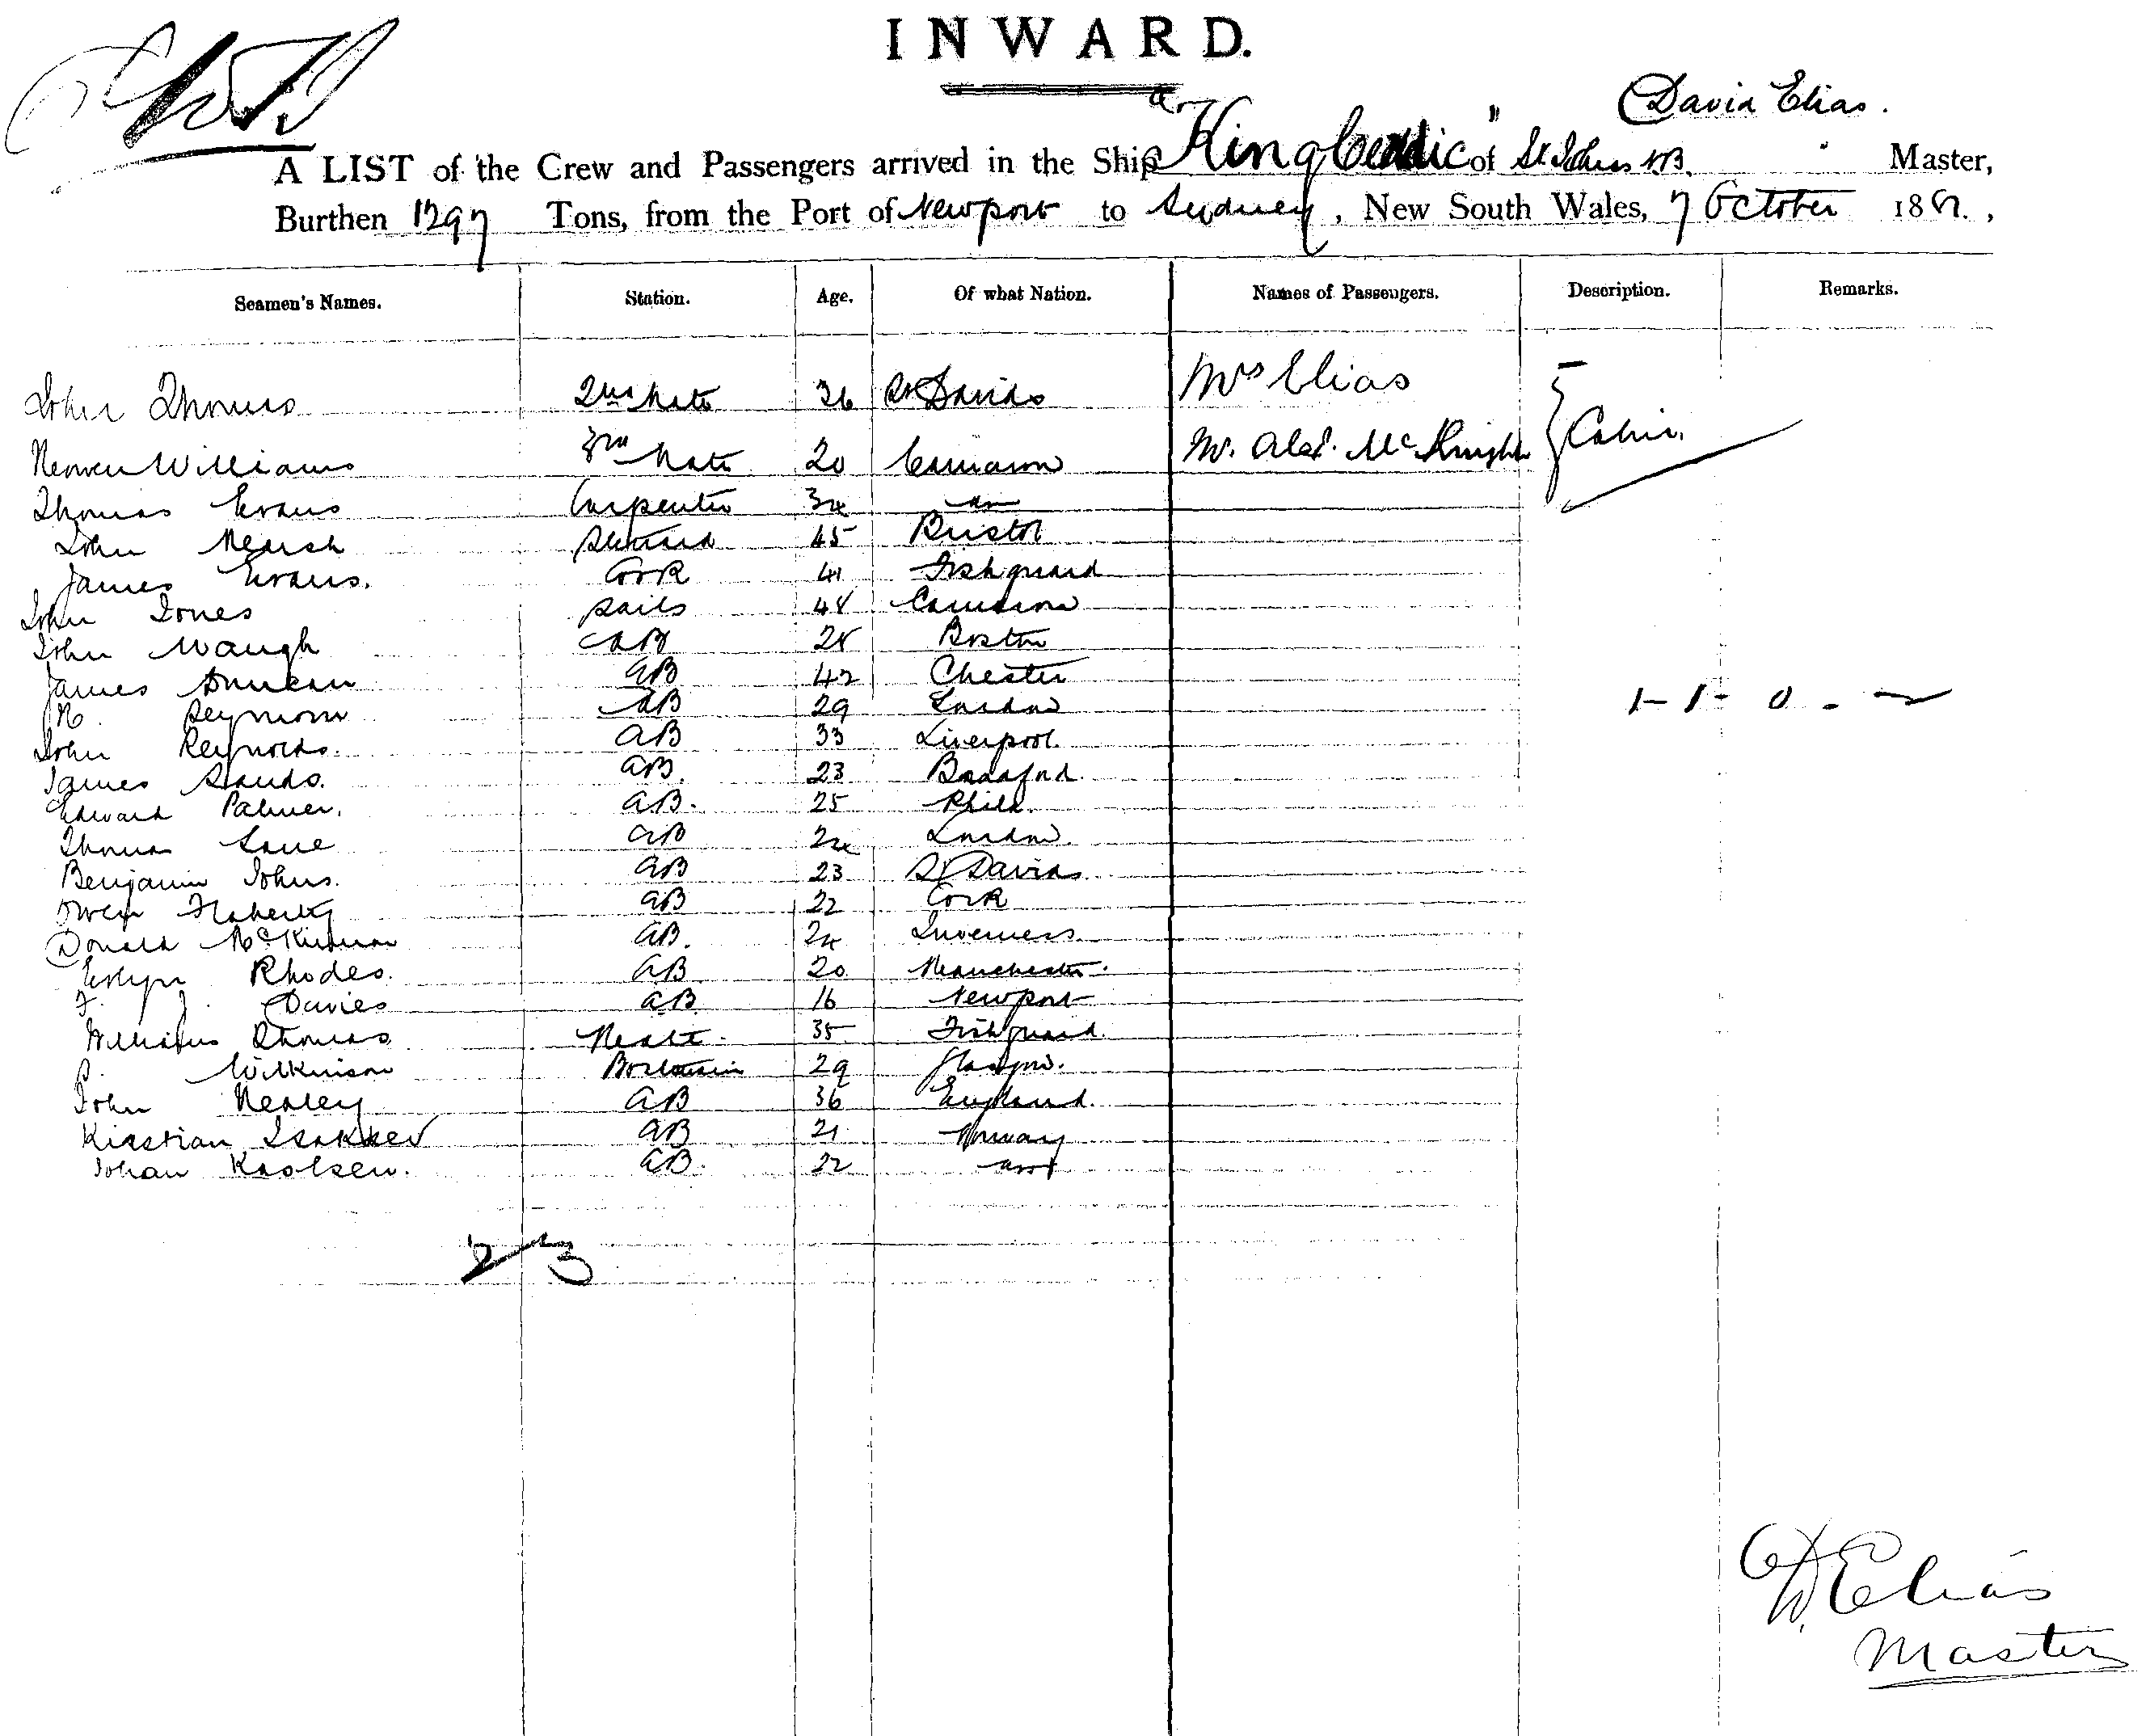 INWARD.
David Elias.
A LIST of the Crew and Passengers arrived in the Ship "King Cenric" of St. Johns N.B. Master,
Burthen 1297 Tons, from the Port of Newport to Sydney, New South Wales, 7 October 188
Seamen's Names. Station. Age. Of what Nation. Names of Passengers. Description. Remarks.
John Thomas 2nd Mate 36 St Davids Mrs Elias
Williams 3rd Mate 20 Mr. Alex. McKnight Cabin.
Thomas Evans Carpenter 34 do
John Marsh Steward 45 Bristol
James Evans. Cook 41 Fishguard
John Jones Sails 48
John Waugh AB 28 Boston
James Duncan AB 42 Chester
Seymour AB 29 London
John Reynolds. AB 33 Liverpool.
James Sands. AB. 23 Bradford.
Edward Palmer. AB. 25 Phila
Thomas Lane AB 24 London.
Benjamin Johns. AB 23 St Davids
Owen Flaherty AB 22 Cork
Donald McKinnon AB. 24 Inverness.
Evlyn Rhodes. AB 20 Manchester.
F. J. Davies AB 16 Newport
William Thomas Mate. 35 Fishguard.
Wilkinson Boatswain 29 Glasgow.
John Nealey AB 36 England.
Kristian Isakker AB 21 Norway
Johan Kaolsen. AB. 22
1 - 1 - 0 -
23
D. Elias
Master